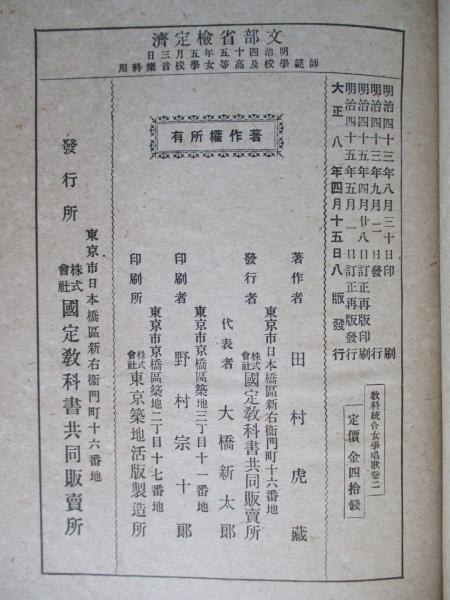 文部省檢定濟
明治四十五年五月三日
師範學校及高等女學校音樂科用
明治四十三年八月三十日印刷
明治四十三年九月二日發行
明治四十五年四月廿八日訂正再版印刷
明治四十五年五月一日訂正再版發行
大正八年四月十五日八版發行
敎科統合女學唱歌卷二
定價金四拾錢
著作權所有
著作者 田村虎藏
東京市日本橋區新右衞門町十六番地
發行者 株式會社國定敎科書共同販賣所
代表者 大橋新太郞
東京市京橋區築地三丁目十一番地
印刷者 野村宗十郞
東京市京橋區築地二丁目十七番地
印刷所 株式會社東京築地活版製造所
東京市日本橋區新右衞門町十六番地
發行所 株式會社國定敎科書共同販賣所